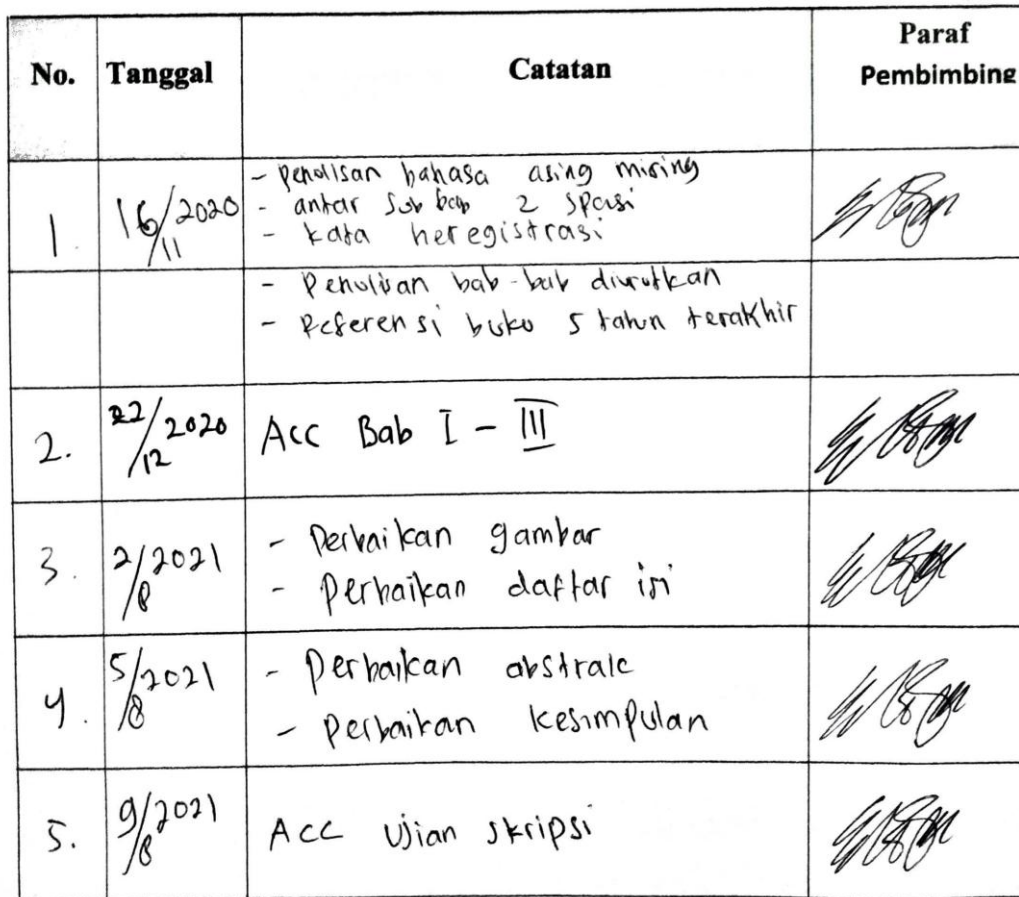 No. Tanggal Catatan Paraf
Pembimbing
1. 16/11/2020 - Penulisan bahasa asing miring
- antar sub bab 2 spasi
- kata heregistrasi
- Penulisan bab-bab diurutkan
- Referensi buku 5 tahun terakhir
2. 22/12/2020 Acc Bab I - III
3. 2/8/2021 - Perbaikan gambar
- Perbaikan daftar isi
4. 5/8/2021 - Perbaikan abstrak
- Perbaikan kesimpulan
5. 9/8/2021 Acc Ujian skripsi